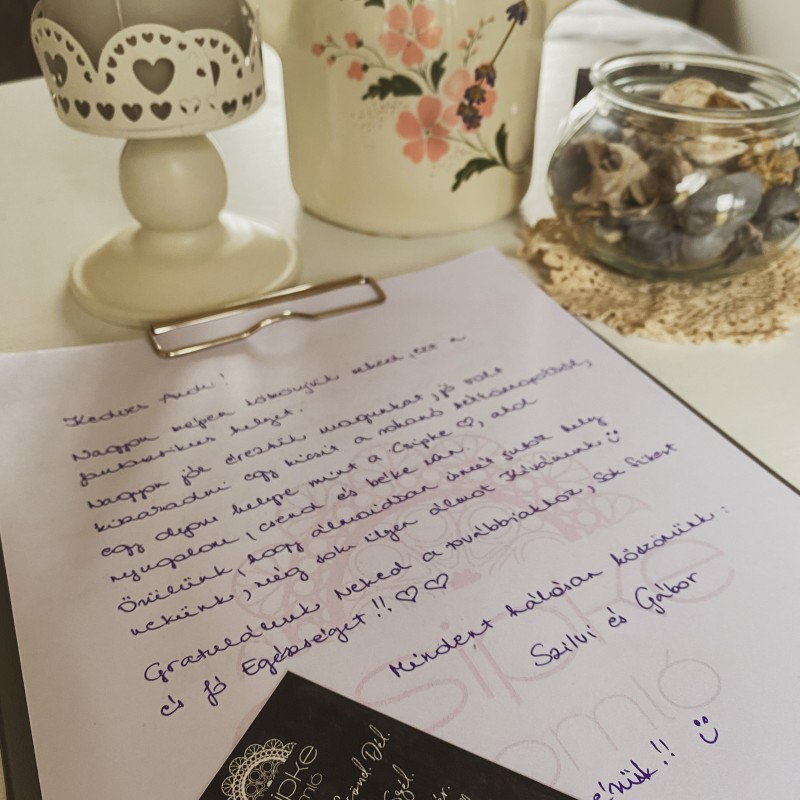 Kedves Andi!
Nagyon szépen köszönjük neked, ezt a
fantasztikus helyet.
Nagyon jól éreztük magunkat, jó volt
kiszaradni egy kicsit a rohanó hétköznapokból,
egy olyan helyre mint a Csipke ♡, ahol
nyugalom, csend és béke van.
Örülünk, hogy álmaidban ismét jutott hely
nekünk, még sok ilyen álmot Kívánunk
Gratulálunk Neked a továbbiakhoz, Sok Sikert
és Jó Egészséget!! ♡♡
Mindent hálásan köszönünk:
Szilvi és Gábor
csipke
omló
CSIPKE